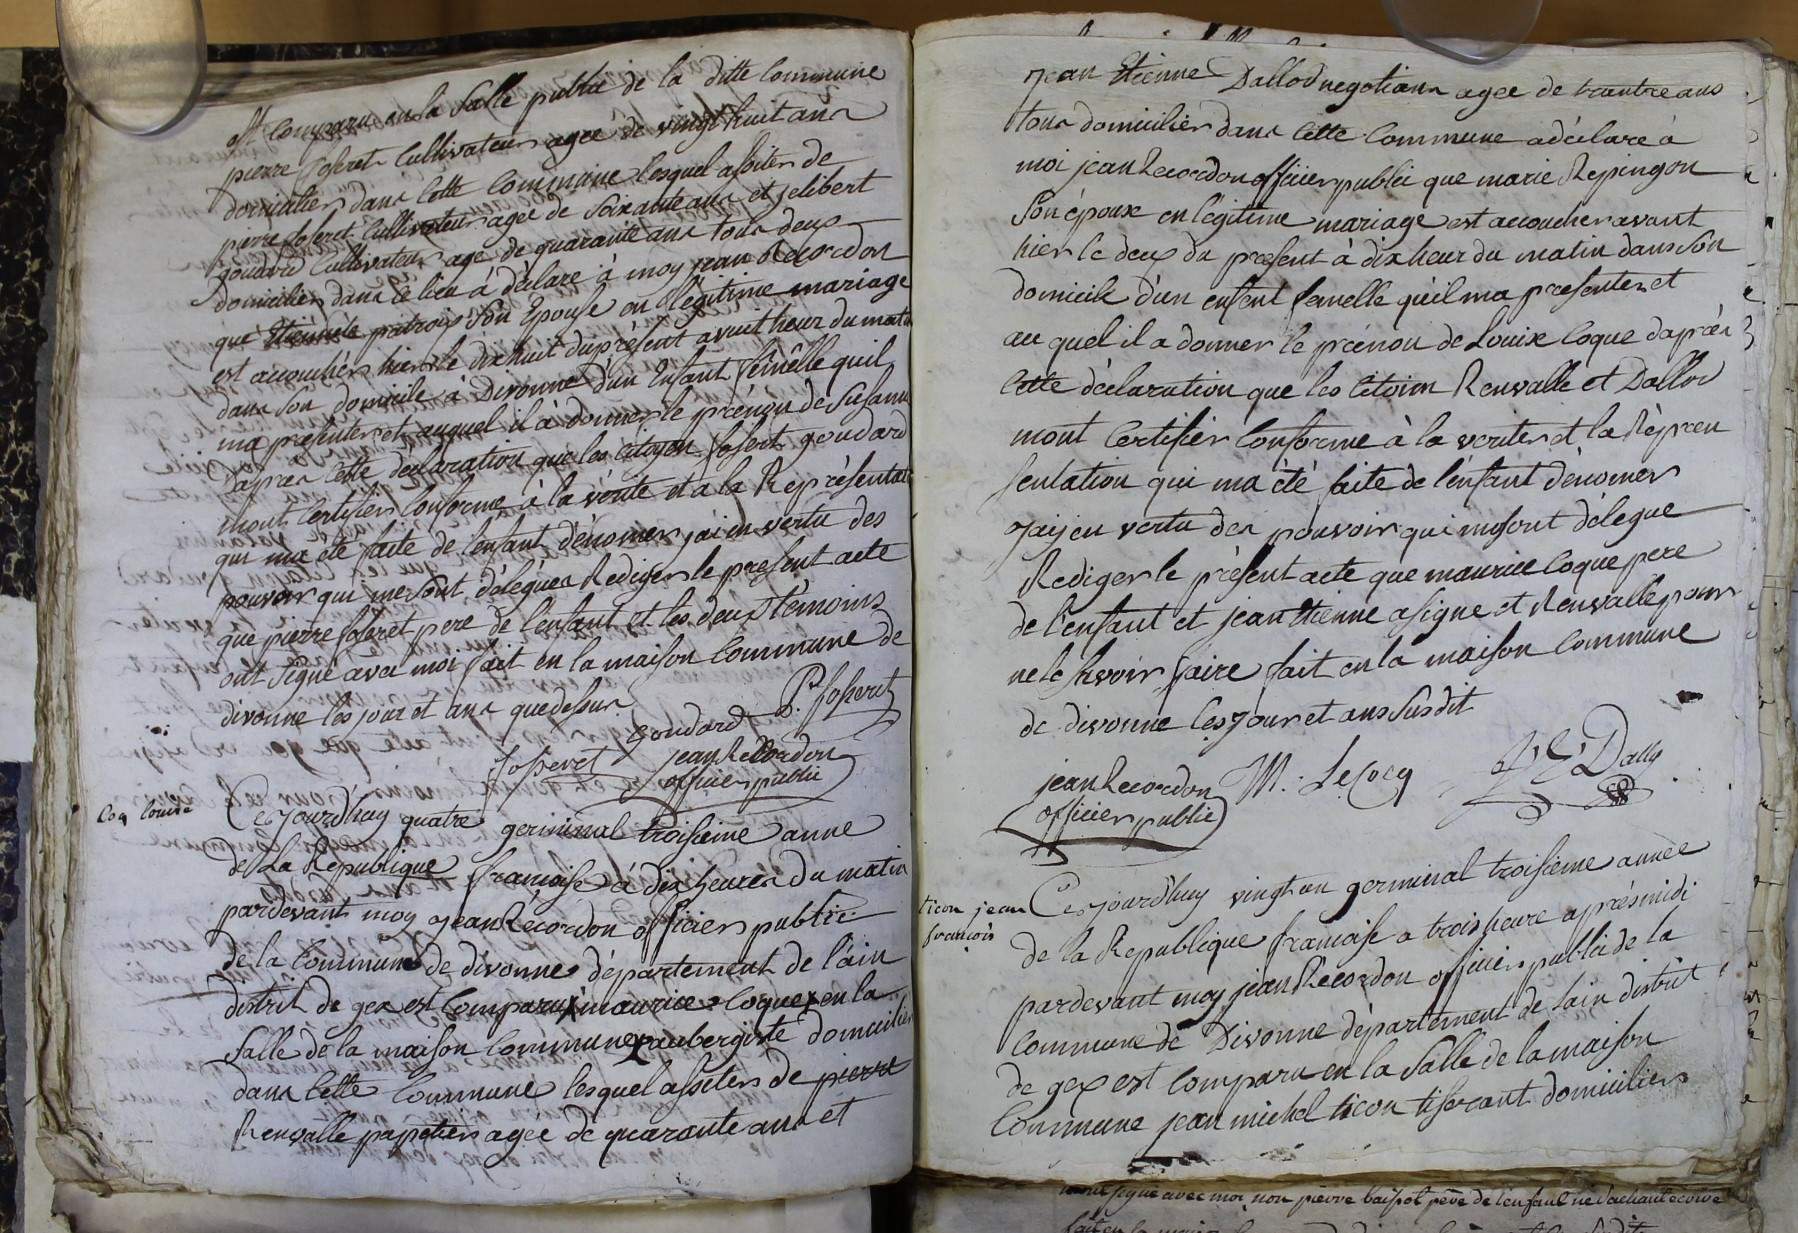 est comparu en la Salle public de la ditte Commune
pierre Josseret Cultivateur agee de vingt huit ans
domicilier dans Cette Commune lesquel assiter de
pierre Josseret Cultivateur agee de Soixante ans et jelibert
goudard Cultivateur age de quarante ans tous deux
Domicilier dans ce lieu à déclare à moy jean Recordon
que Etiennete Son Epouse en légitime mariage
est accouchér hier le dixhuit du présent a vuit heur du matin
dans Son domicile à Divonne d'un Enfant femelle quil
ma presenter et auquel il à donner le prénon de Susanne
dapres Cette déclaration que les Citoyen Josseret goudard
mont Certifier Conforme à la vérité et a la Représentation
qui ma été faite de l'enfant dénomer jai en vertu des
pouvoir qui me Sont déléguer Rediger le present acte
que pierre Josseret pere de l'enfant et les deux témoins
ont Signé avec moi fait en la maison Commune de
divonne les jour et ans que dessus
goudard P. Josseret
Josseret jean Recordon
officier public
Coq louise
Ce jourd'huy quatre germinal troisieme anne
de La République françoise à dix heures du matin
pardevant moy Jean Recordon officier public
de la Commune de divonne département de l'ain
distrit de gex est Comparu maurice Coque en la
Salle de la maison Commune aubergiste domicilier
dans Cette Commune lesquel assiter de pierre
Renvalle papetier agée de quarante ans et
jean Etienne Dallod negotians agee de trantre ans
tous domicilier dans Cette Commune a déclare à
moi jean Recordon officier public que marie Repingon
Son épouse en légitime mariage est accoucher avant
hier le deux du present à dix heur du matin dans Son
domicile d'un enfent femelle quéil ma presenter et
au quel il a donner le prénon de Louise Coque daprés
Cette déclaration que les Citoien Renvalle et Dallod
mont Certifier Conforme à la veriter et la Répren
sentation qui ma été faite de l'enfant dénomer
Jaij en vertu des pouvoir qui me sont délegue
Rediger le présent acte que maurice Coque pere
de l'enfant et jean Etienne a signe et Renvalle pour
ne le Savoir faire fait en la maison Commune
de divonne les jour et ans Susdit
jean Recordon M. LeCocq J E Dallo
officier public
ticon jean
françois
Ce jourd'huy vingt un germinal troisieme année
de la Republique françoise a trois heure aprés midi
pardevant moy jean Recordon officier public de la
Commune de Divonne département de lain distrit
de gex est Comparu en la Salle de la maison
Commune jean michel ticon tiserant domicilier
avec moi non pierre baissot pére de l'enfant ne sachant écrire